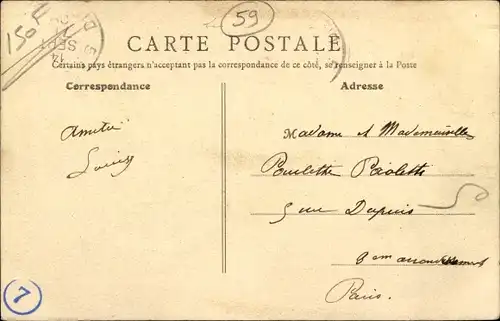 150 F
59
SEPT
CARTE POSTALE
Certains pays étrangers n'acceptant pas la correspondance de ce côté, se renseigner à la Poste
Correspondance
Adresse
Amitié
Louis
Madame et Mademoiselle
Paulette Paoletti
5 rue Dupuis
3em arrondissement
Paris.
7